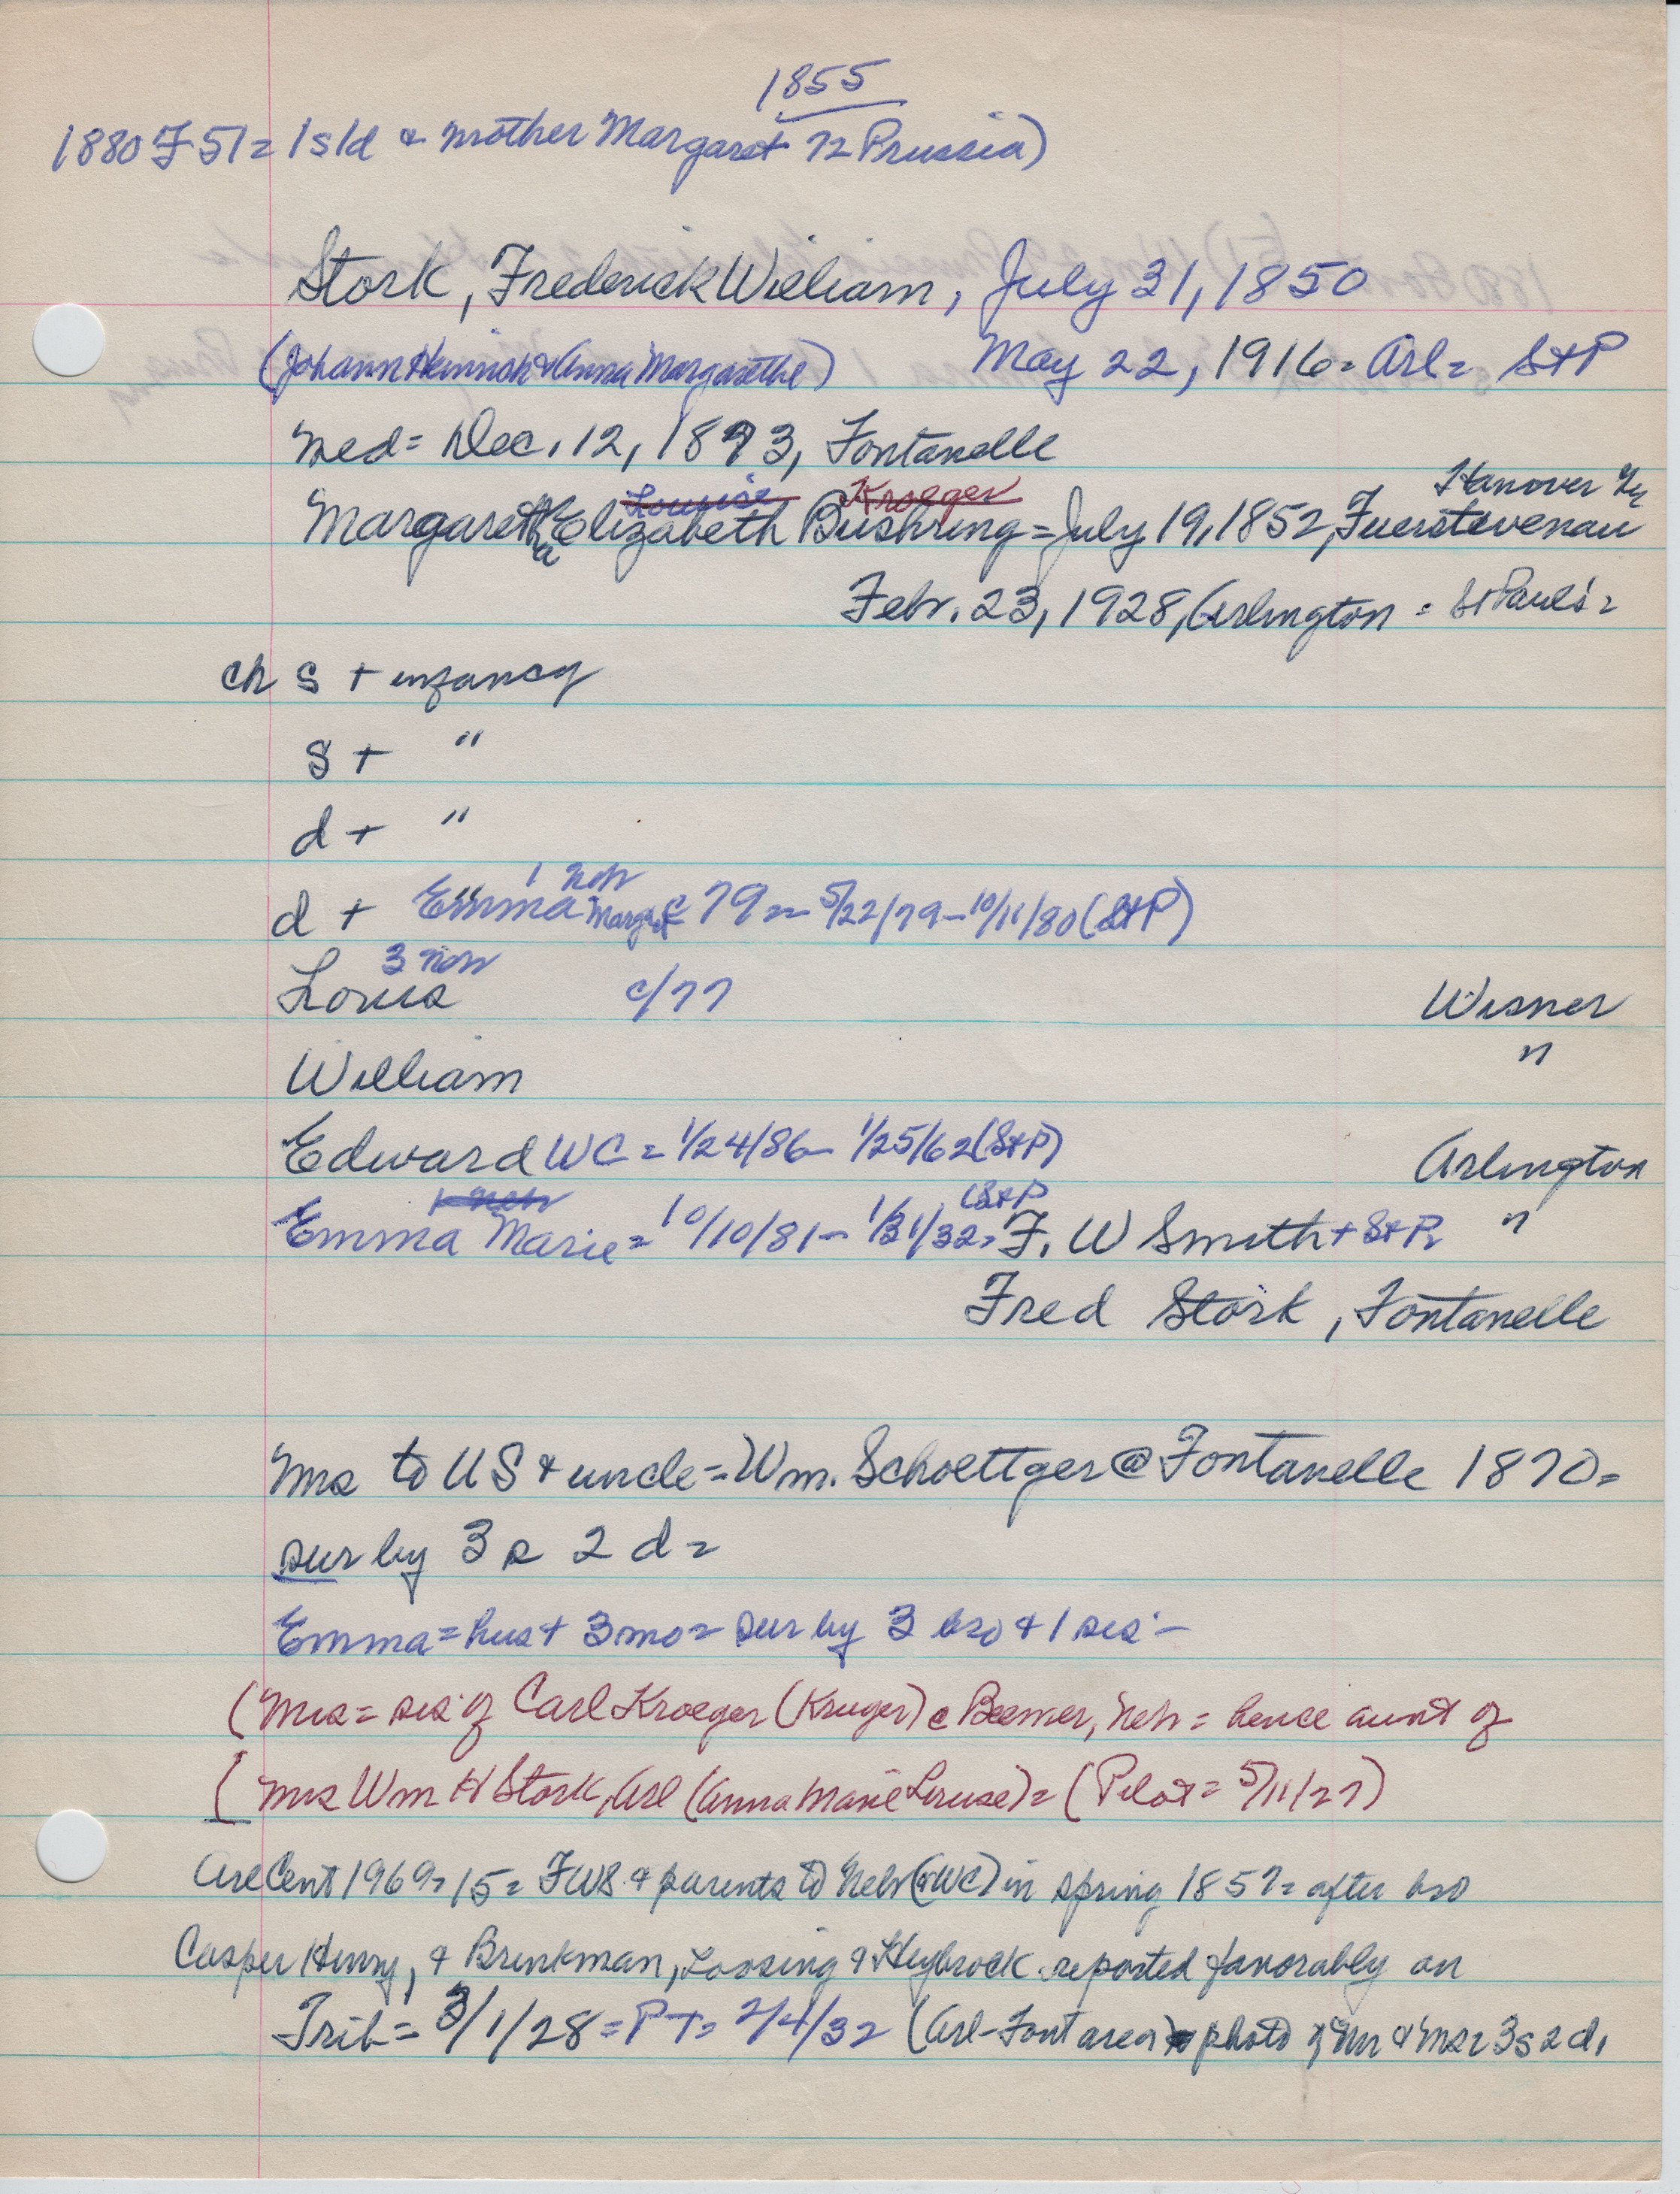 1855
1880 F 51 = 1s1d & mother Margaret 72 Prussia)
Stork, Frederick William, July 31, 1850
(Johann Heinrich & Anna Margarethe) May 22, 1916 = Arl = StP
med = Dec. 12, 1873, Fontanelle
Louise Kroeger Hanover
Margaretha Elizabeth Bushring = July 19, 1852, Fuerstevenau
Febr. 23, 1928, Arlington = St Paul's =
ch s + infancy
s + "
d + "
1 Neb
d + Emma Margt c 79 = 5/22/79 - 10/11/80 (StP)
3 Neb
Louis c/77 Wisner
William "
Edward WC = 1/24/86 - 1/25/62 (StP) Arlington
1 Neb (StP
Emma Marie = 10/10/81 - 1/31/32 = F. W Smith + StP = "
Fred Stork, Fontanelle
Mrs to US & uncle = Wm. Schoettger @ Fontanelle 1870 =
sur by 3 s 2 d =
Emma = hus + 3 mo = sur by 3 bro & 1 sis -
(Mrs = sis of Carl Kroeger (Kruger) @ Beemer, Neb = hence aunt of
( Mrs Wm H Stork, Arl (Anna Marie Louise) = (Pilot = 5/11/27)
Arl Cent 1969 = 15 = FWS & parents to Neb (& WC) in spring 1857 = after bro
Casper Henry, & Brinkman, Loosing & Heybrock reported favorably on
Trib = 3/1/28 = PT = 2/4/32 (Arl-Font area) photo of Mr & Mrs 2 3s 2 d.